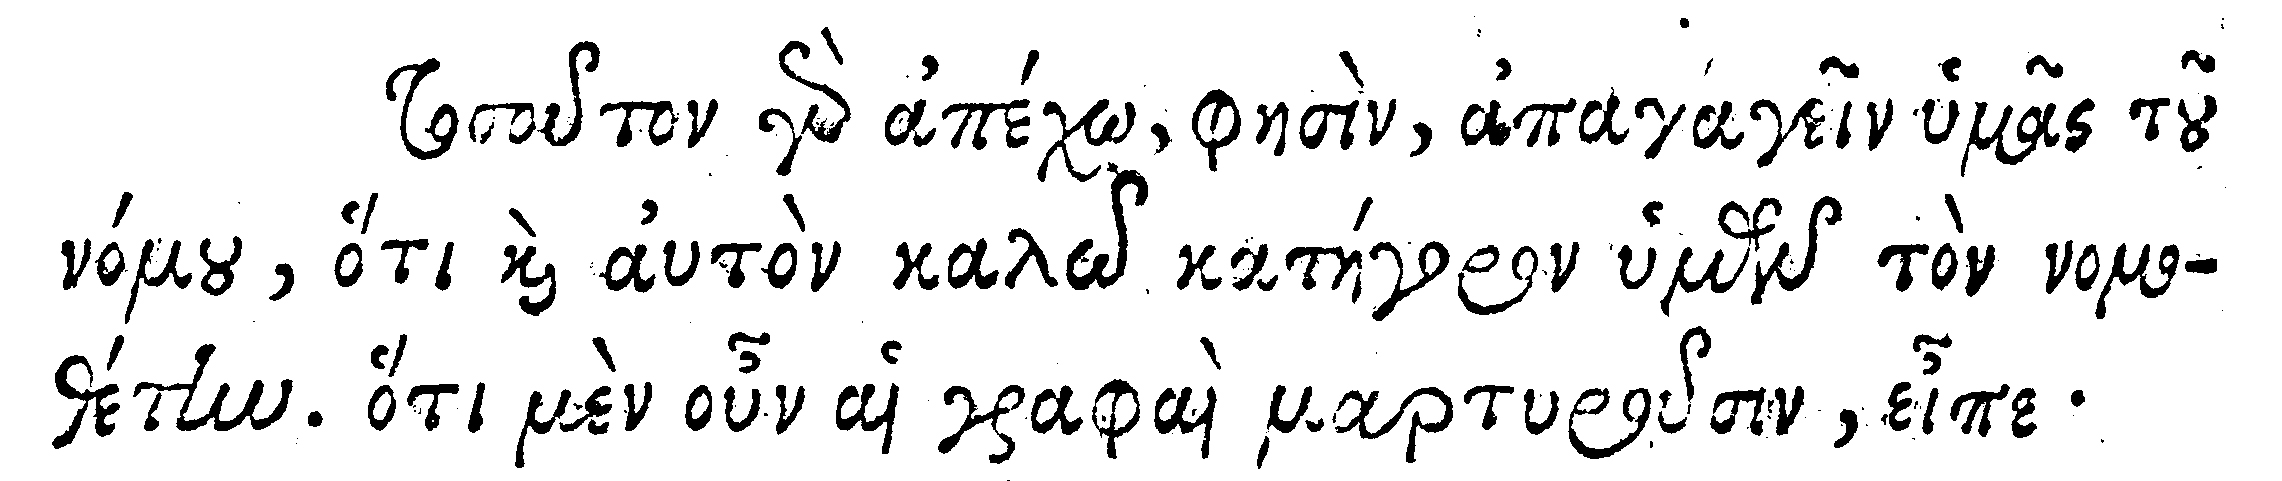 Τοσοῦτον γὰρ ἀπέχω, φησὶν, ἀπαγαγεῖν ὑμᾶς τοῦ
νόμου, ὅτι καὶ αὐτὸν καλῶ κατήγορον ὑμῶν τὸν νομο-
θέτην. ὅτι μὲν οὖν αἱ γραφαὶ μαρτυροῦσιν, εἶπε·